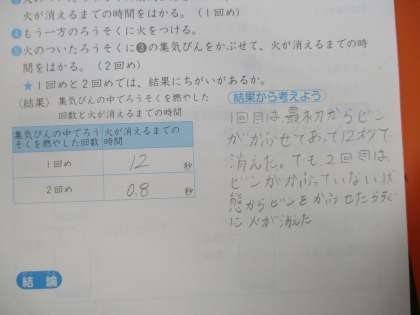 火が消えるまでの時間をはかる。（1回め）
④もう一方のろうそくに火をつける。
⑤火のついたろうそくに❸の集気びんをかぶせて、火が消えるまでの時
間をはかる。（2回め）
★1回めと2回めでは、結果にちがいがあるか。
（結果） 集気びんの中でろうそくを燃やした
回数と火が消えるまでの時間
集気びんの中でろう
そくを燃やした回数
火が消えるまでの
時間
1回め 12 秒
2回め 0.8 秒
結果から考えよう
1回目は最初からビン
がかぶせてあって12秒で
消えた。でも2回目は、
ビンがかぶっていない状
態からビンをかぶせたらすぐ
に火が消えた
結論